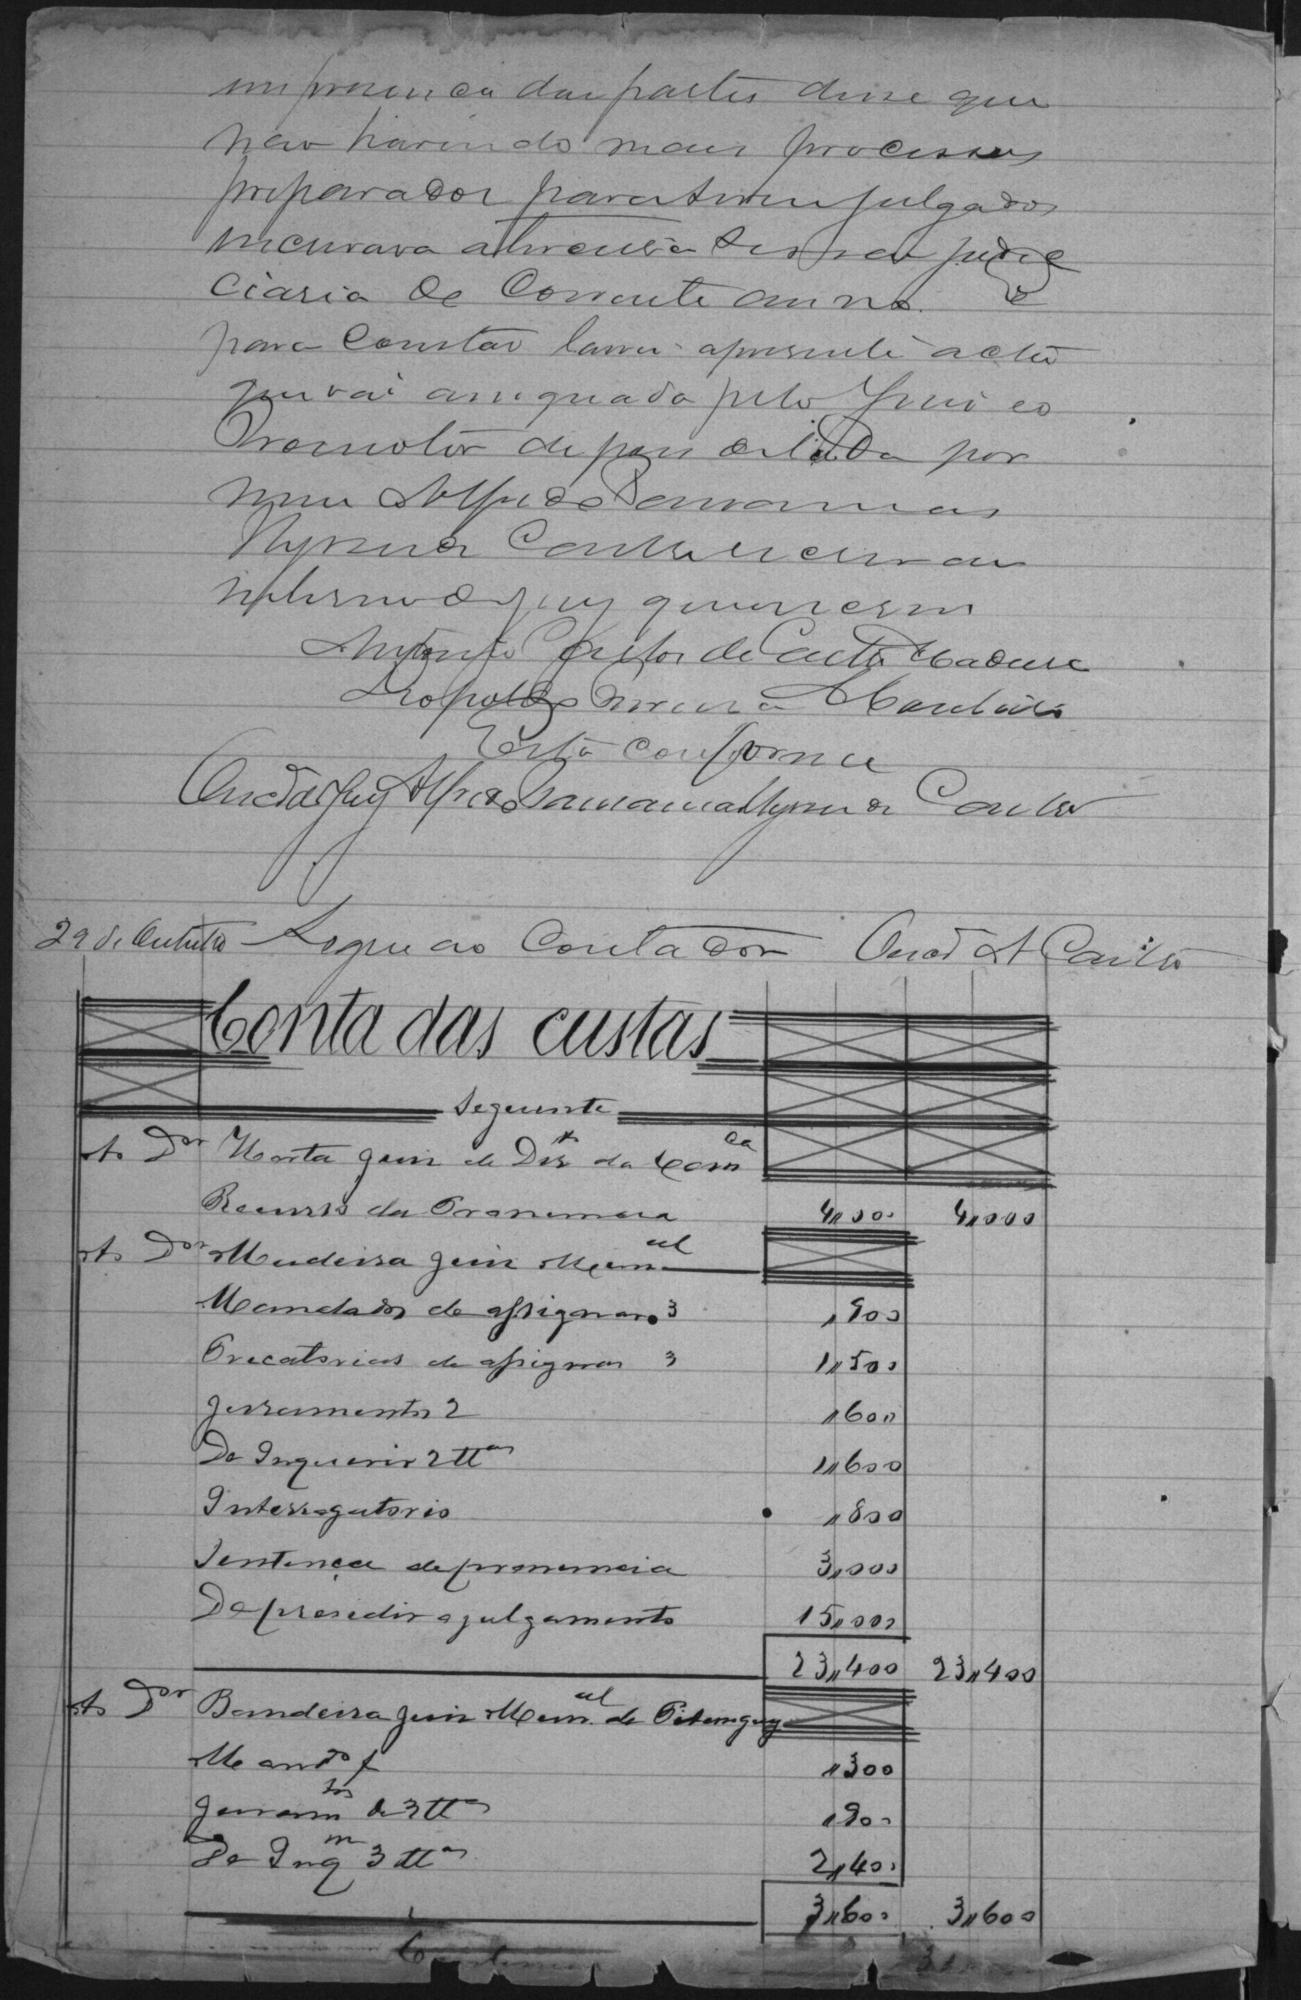 em presença das partes disse que
não havendo mais processos
preparados para serem julgados
encerrava a presente sessão judi
ciaria do Corrente anno. E
para constar lavrei a presente acta
que vai assignada pelo Juiz e o
Promotor depois de lida por
mim Alfredo
Couto escrivão
interino do jury que escrevi
Antonio de Madeira
Leopoldo
Está conforme
O escrivão do Jury Alfredo Couto
29 de Outubro Segue ao Contador O escrivão A Couto
Conta das custas
Seguinte
Ao Dor Horta Juiz de Dirto da Comca
Recurso da Pronuncia 4,000 4,000
Ao Dor Madeira Juiz Munal
Mandados de assignar 3 ,900
Precatorias de assignar 3 1,500
Juramentos 2 ,600
De Inquerir 2 ttas 1,600
Interrogatorio ,800
Sentença de pronuncia 3,000
De presedir o julgamento 15,000
23,400 23,400
Ao Dor Bandeira Juiz Munal de Pitanguy
Mando 1 ,300
Juramtos de 3 ttas ,900
De Inqm 3 ttas 2,400
3,600 3,600